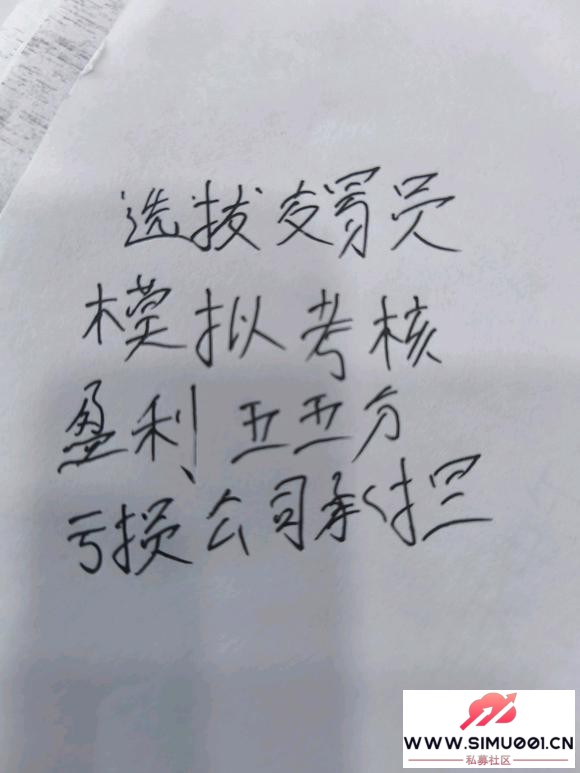 选拔交易员
模拟考核
盈利五五分
亏损公司承担
WWW.SIMU001.CN
私募社区